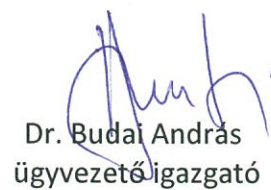 Dr. Budai András
ügyvezető igazgató